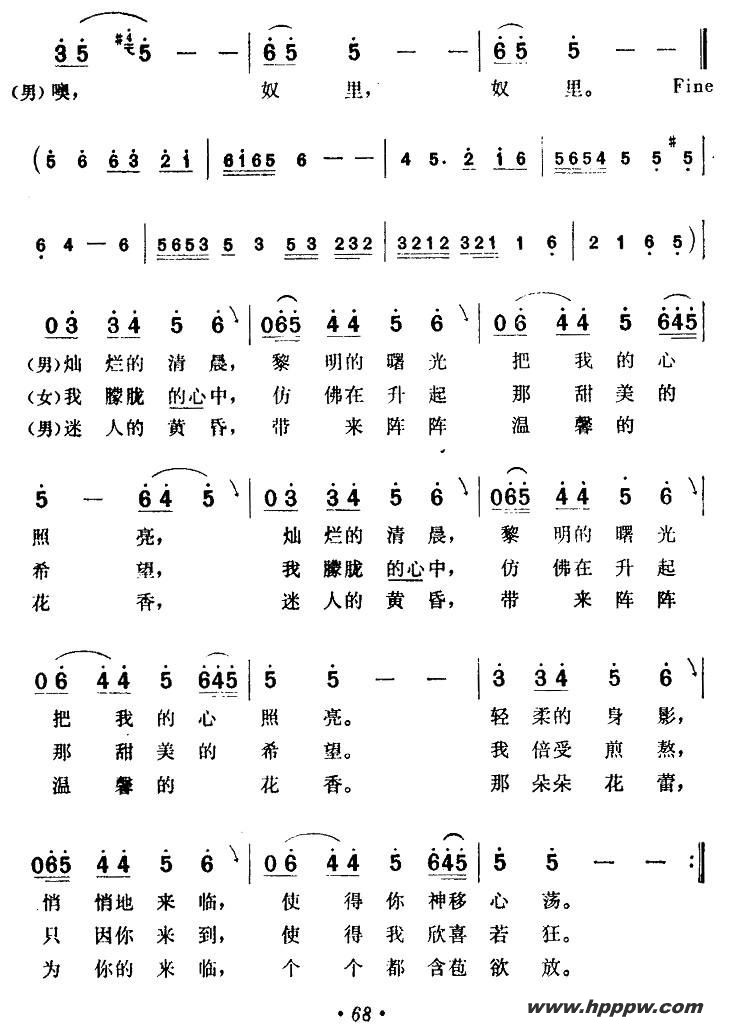 3 5 #4 5 — — | 6 5 5 — | 6 5 5 — ‖
(男)噢， 奴 里， 奴 里。 Fine
( 5 6 6 3 2 1 | 6 1 6 5 6 — — | 4 5. 2 1 6 | 5 6 5 4 5 5 #5 |
6 4 — 6 | 5 6 5 3 5 3 5 3 2 3 2 | 3 2 1 2 3 2 1 1 6 | 2 1 6 5 ) |
0 3 3 4 5 6 | 0 6 5 4 4 5 6 | 0 6 4 4 5 6 4 5 |
(男)灿 烂的 清 晨， 黎 明的 曙 光 把 我 的 心
(女)我 朦胧 的心中， 仿 佛在 升 起 那 甜 美 的
(男)迷 人的 黄 昏， 带 来 阵 阵 温 馨 的
5 — 6 4 5 | 0 3 3 4 5 6 | 0 6 5 4 4 5 6 |
照 亮， 灿 烂的 清 晨， 黎 明的 曙 光
希 望， 我 朦胧 的心中， 仿 佛在 升 起
花 香， 迷 人的 黄 昏， 带 来 阵 阵
0 6 4 4 5 6 4 5 | 5 5 — — | 3 3 4 5 6 |
把 我 的 心 照 亮。 轻 柔的 身 影，
那 甜 美 的 希 望。 我 倍受 煎 熬，
温 馨 的 花 香。 那 朵朵 花 蕾，
0 6 5 4 4 5 6 | 0 6 4 4 5 6 4 5 | 5 5 — — :|
悄 悄地 来 临， 使 得 你 神移 心 荡。
只 因你 来 到， 使 得 我 欣喜 若 狂。
为 你的 来 临， 个 个 都 含苞 欲 放。
· 68 ·
www.hpppw.com